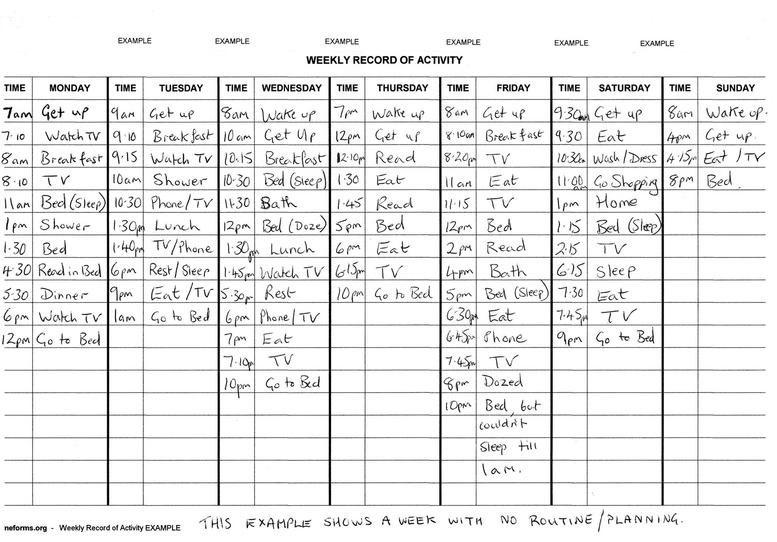 EXAMPLE EXAMPLE EXAMPLE EXAMPLE EXAMPLE EXAMPLE
WEEKLY RECORD OF ACTIVITY
TIME MONDAY TIME TUESDAY TIME WEDNESDAY TIME THURSDAY TIME FRIDAY TIME SATURDAY TIME SUNDAY
7am Get up 9am Get up 8am Wake up 7pm Wake up 8am Get up 9.30am Get up 8am Wake up.
7.10 Watch TV 9.10 Breakfast 10am Get Up 12pm Get up 8.10am Breakfast 9.30 Eat 4pm Get up.
8am Breakfast 9.15 Watch TV 10.15 Breakfast 12.10pm Read 8.20pm TV 10.30am Wash/Dress 4.15pm Eat/TV
8.10 TV 10am Shower 10.30 Bed (Sleep) 1.30 Eat 11am Eat 11.00 Go Shopping 8pm Bed.
11am Bed (Sleep) 10.30 Phone/TV 11.30 Bath 1.45 Read 11.15 TV 1pm Home
1pm Shower 1.30pm Lunch 12pm Bed (Doze) 5pm Bed 12pm Bed 1.15 Bed (Sleep)
1.30 Bed 1.40pm TV/Phone 1.30pm Lunch 6pm Eat 2pm Read 2.15 TV
4.30 Read in Bed 6pm Rest/Sleep 1.45pm Watch TV 6.15pm TV 4pm Bath 6.15 Sleep
5.30 Dinner 9pm Eat/TV 5.30pm Rest 10pm Go to Bed 5pm Bed (Sleep) 7.30 Eat
6pm Watch TV 1am Go to Bed 6pm Phone/TV 6.30pm Eat 7.45pm TV
12pm Go to Bed 7pm Eat 6.45pm Phone 9pm Go to Bed
7.10pm TV 7.45pm TV
10pm Go to Bed 8pm Dozed
10pm Bed, but
couldn't
Sleep till
1am.
neforms.org - Weekly Record of Activity EXAMPLE THIS EXAMPLE SHOWS A WEEK WITH NO ROUTINE/PLANNING.